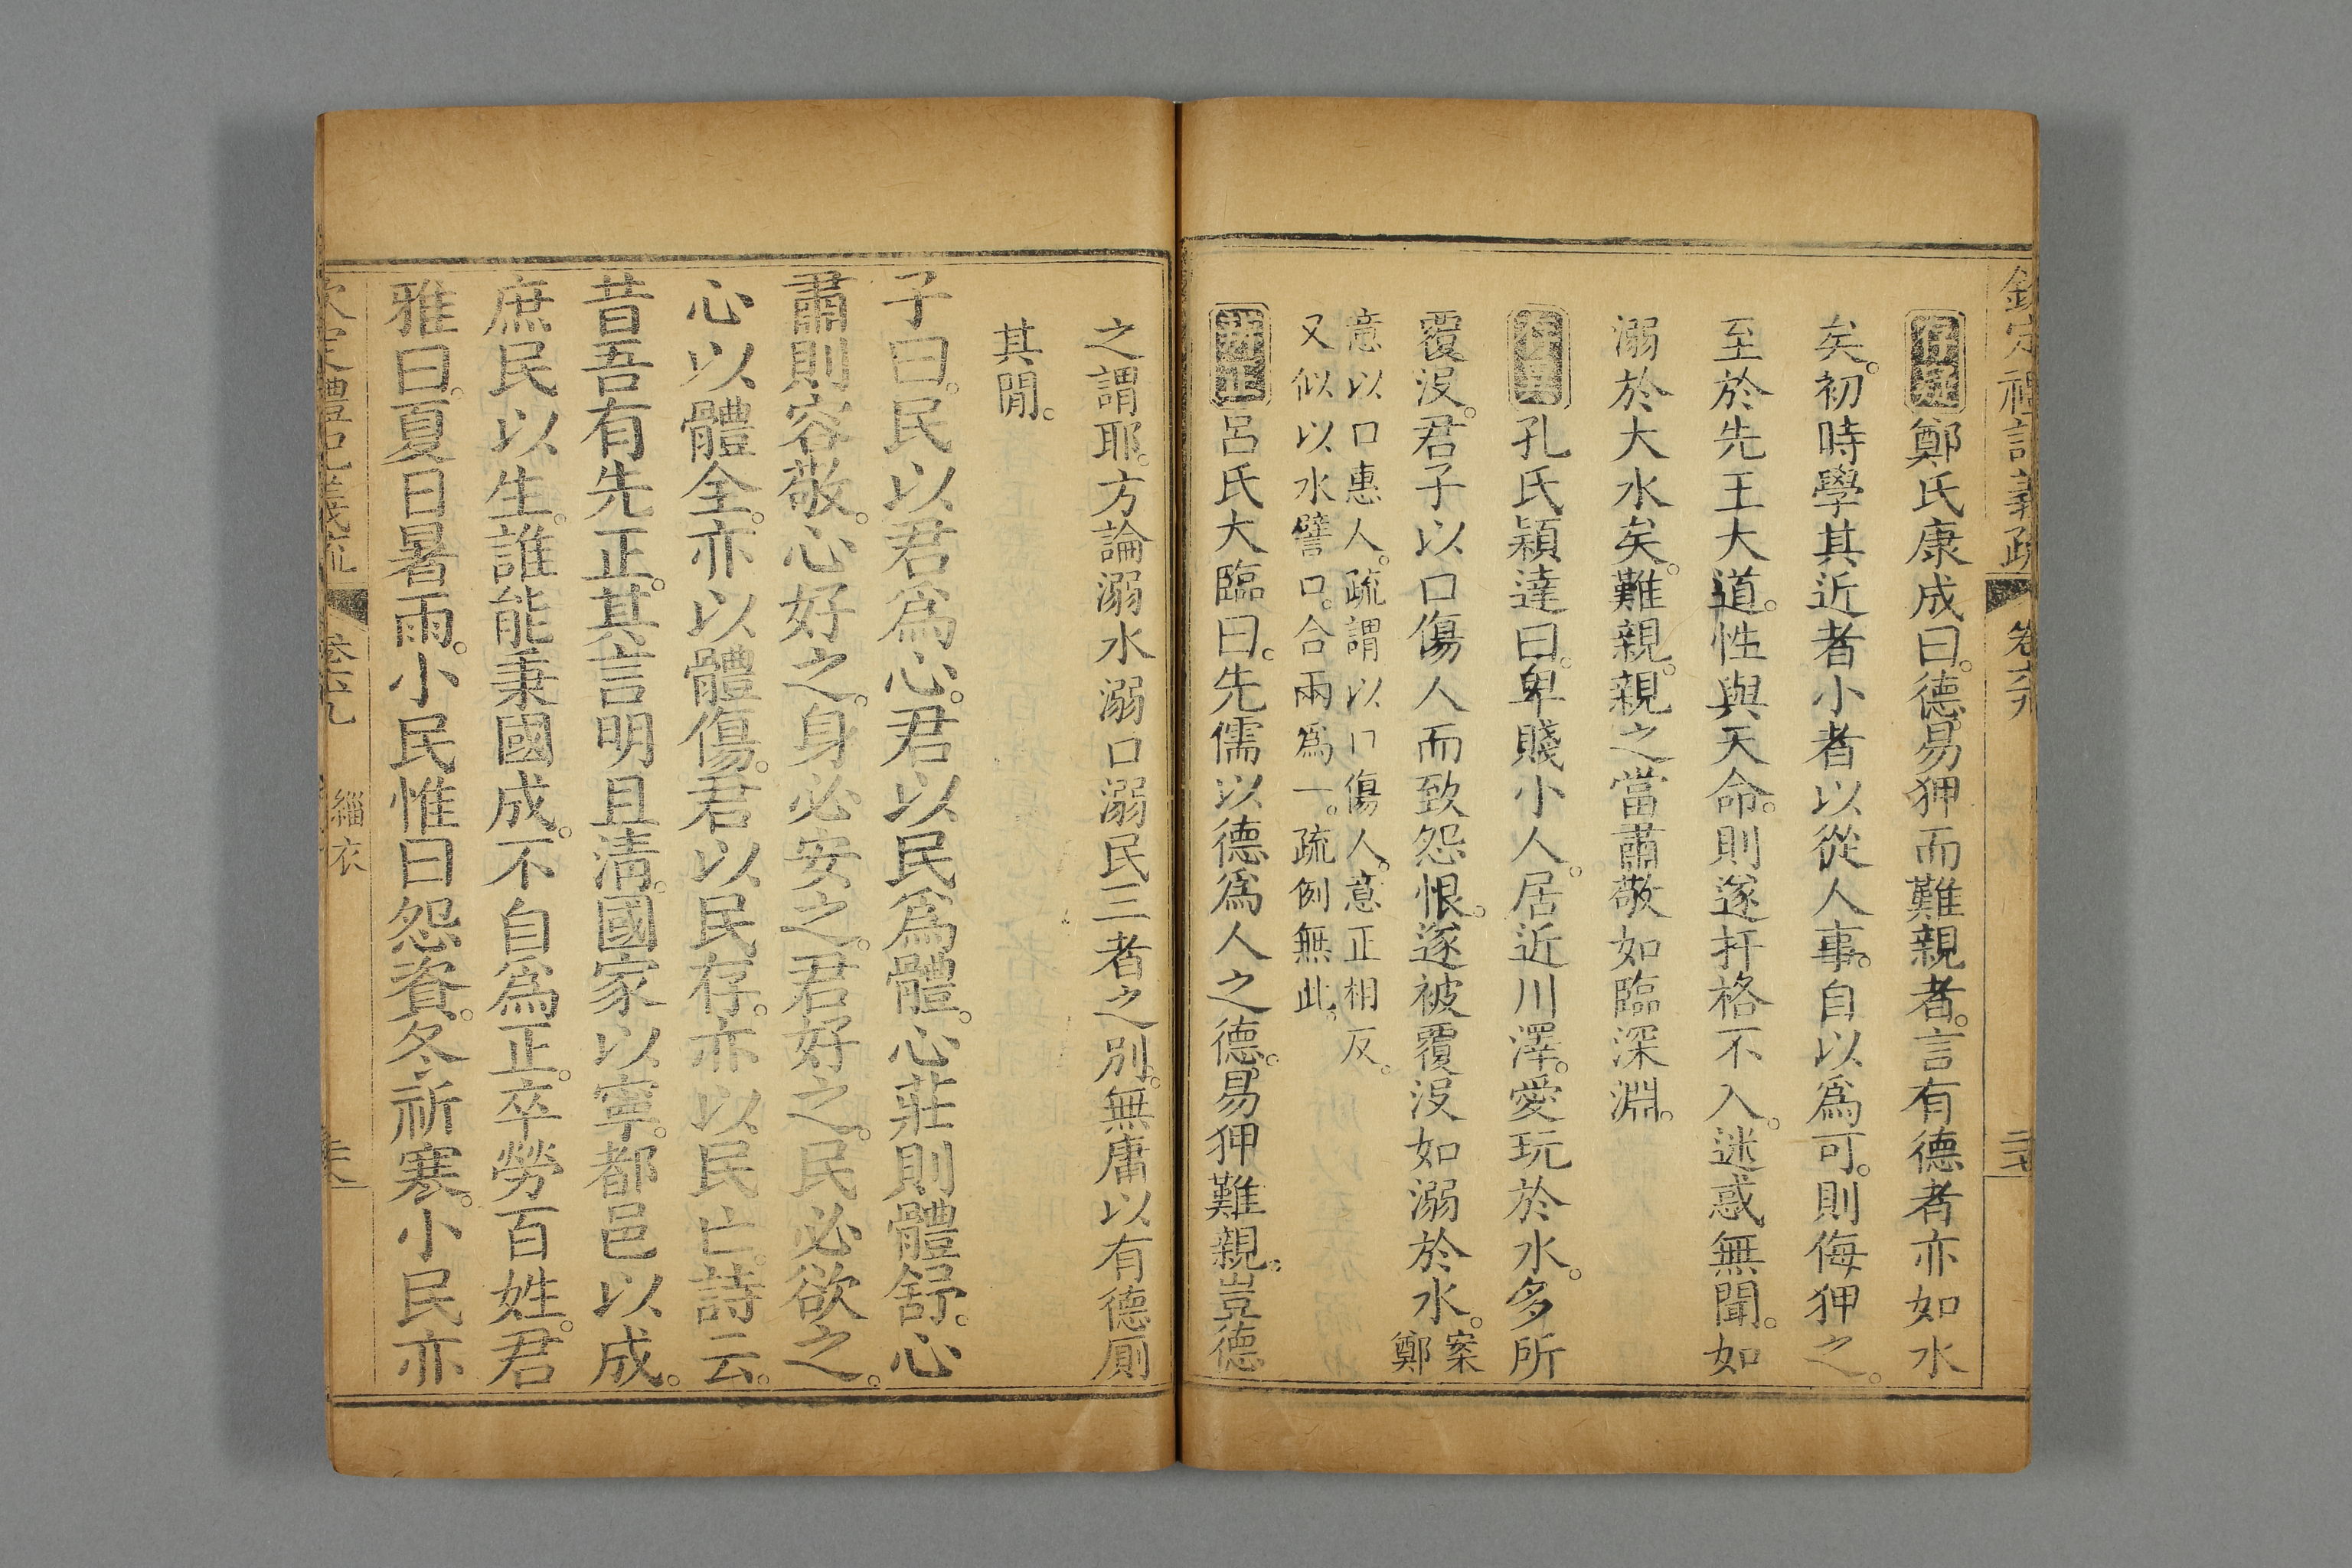 欽定禮記義疏 卷六九 三七
存疑 鄭氏康成曰。德易狎而難親者。言有德者亦如水
矣。初時學其近者小者以從人事。自以爲可。則侮狎之。
至於先王大道。性與天命。則遂扞格不入。迷惑無聞。如
溺於大水矣。難親。親之當肅敬如臨深淵。
存異 孔氏穎達曰。卑賤小人。居近川澤。愛玩於水。多所
覆沒。君子以口傷人而致怨恨。遂被覆沒如溺於水。案鄭
意以口惠人。疏謂以口傷人。意正相反。
又似以水譬口。合兩爲一。疏例無此。
辨正 呂氏大臨曰。先儒以德爲人之德。易狎難親。豈德
之謂耶。方論溺水溺口溺民三者之別。無庸以有德厠
其閒。
子曰。民以君爲心。君以民爲體。心莊則體舒。心
肅則容敬。心好之。身必安之。君好之。民必欲之。
心以體全。亦以體傷。君以民存。亦以民亡。詩云。
昔吾有先正。其言明且淸。國家以寧。都邑以成。
庶民以生。誰能秉國成。不自爲正。卒勞百姓。君
雅曰。夏日暑雨。小民惟曰怨資。冬祈寒。小民亦
欽定禮記義疏 卷六九 緇衣